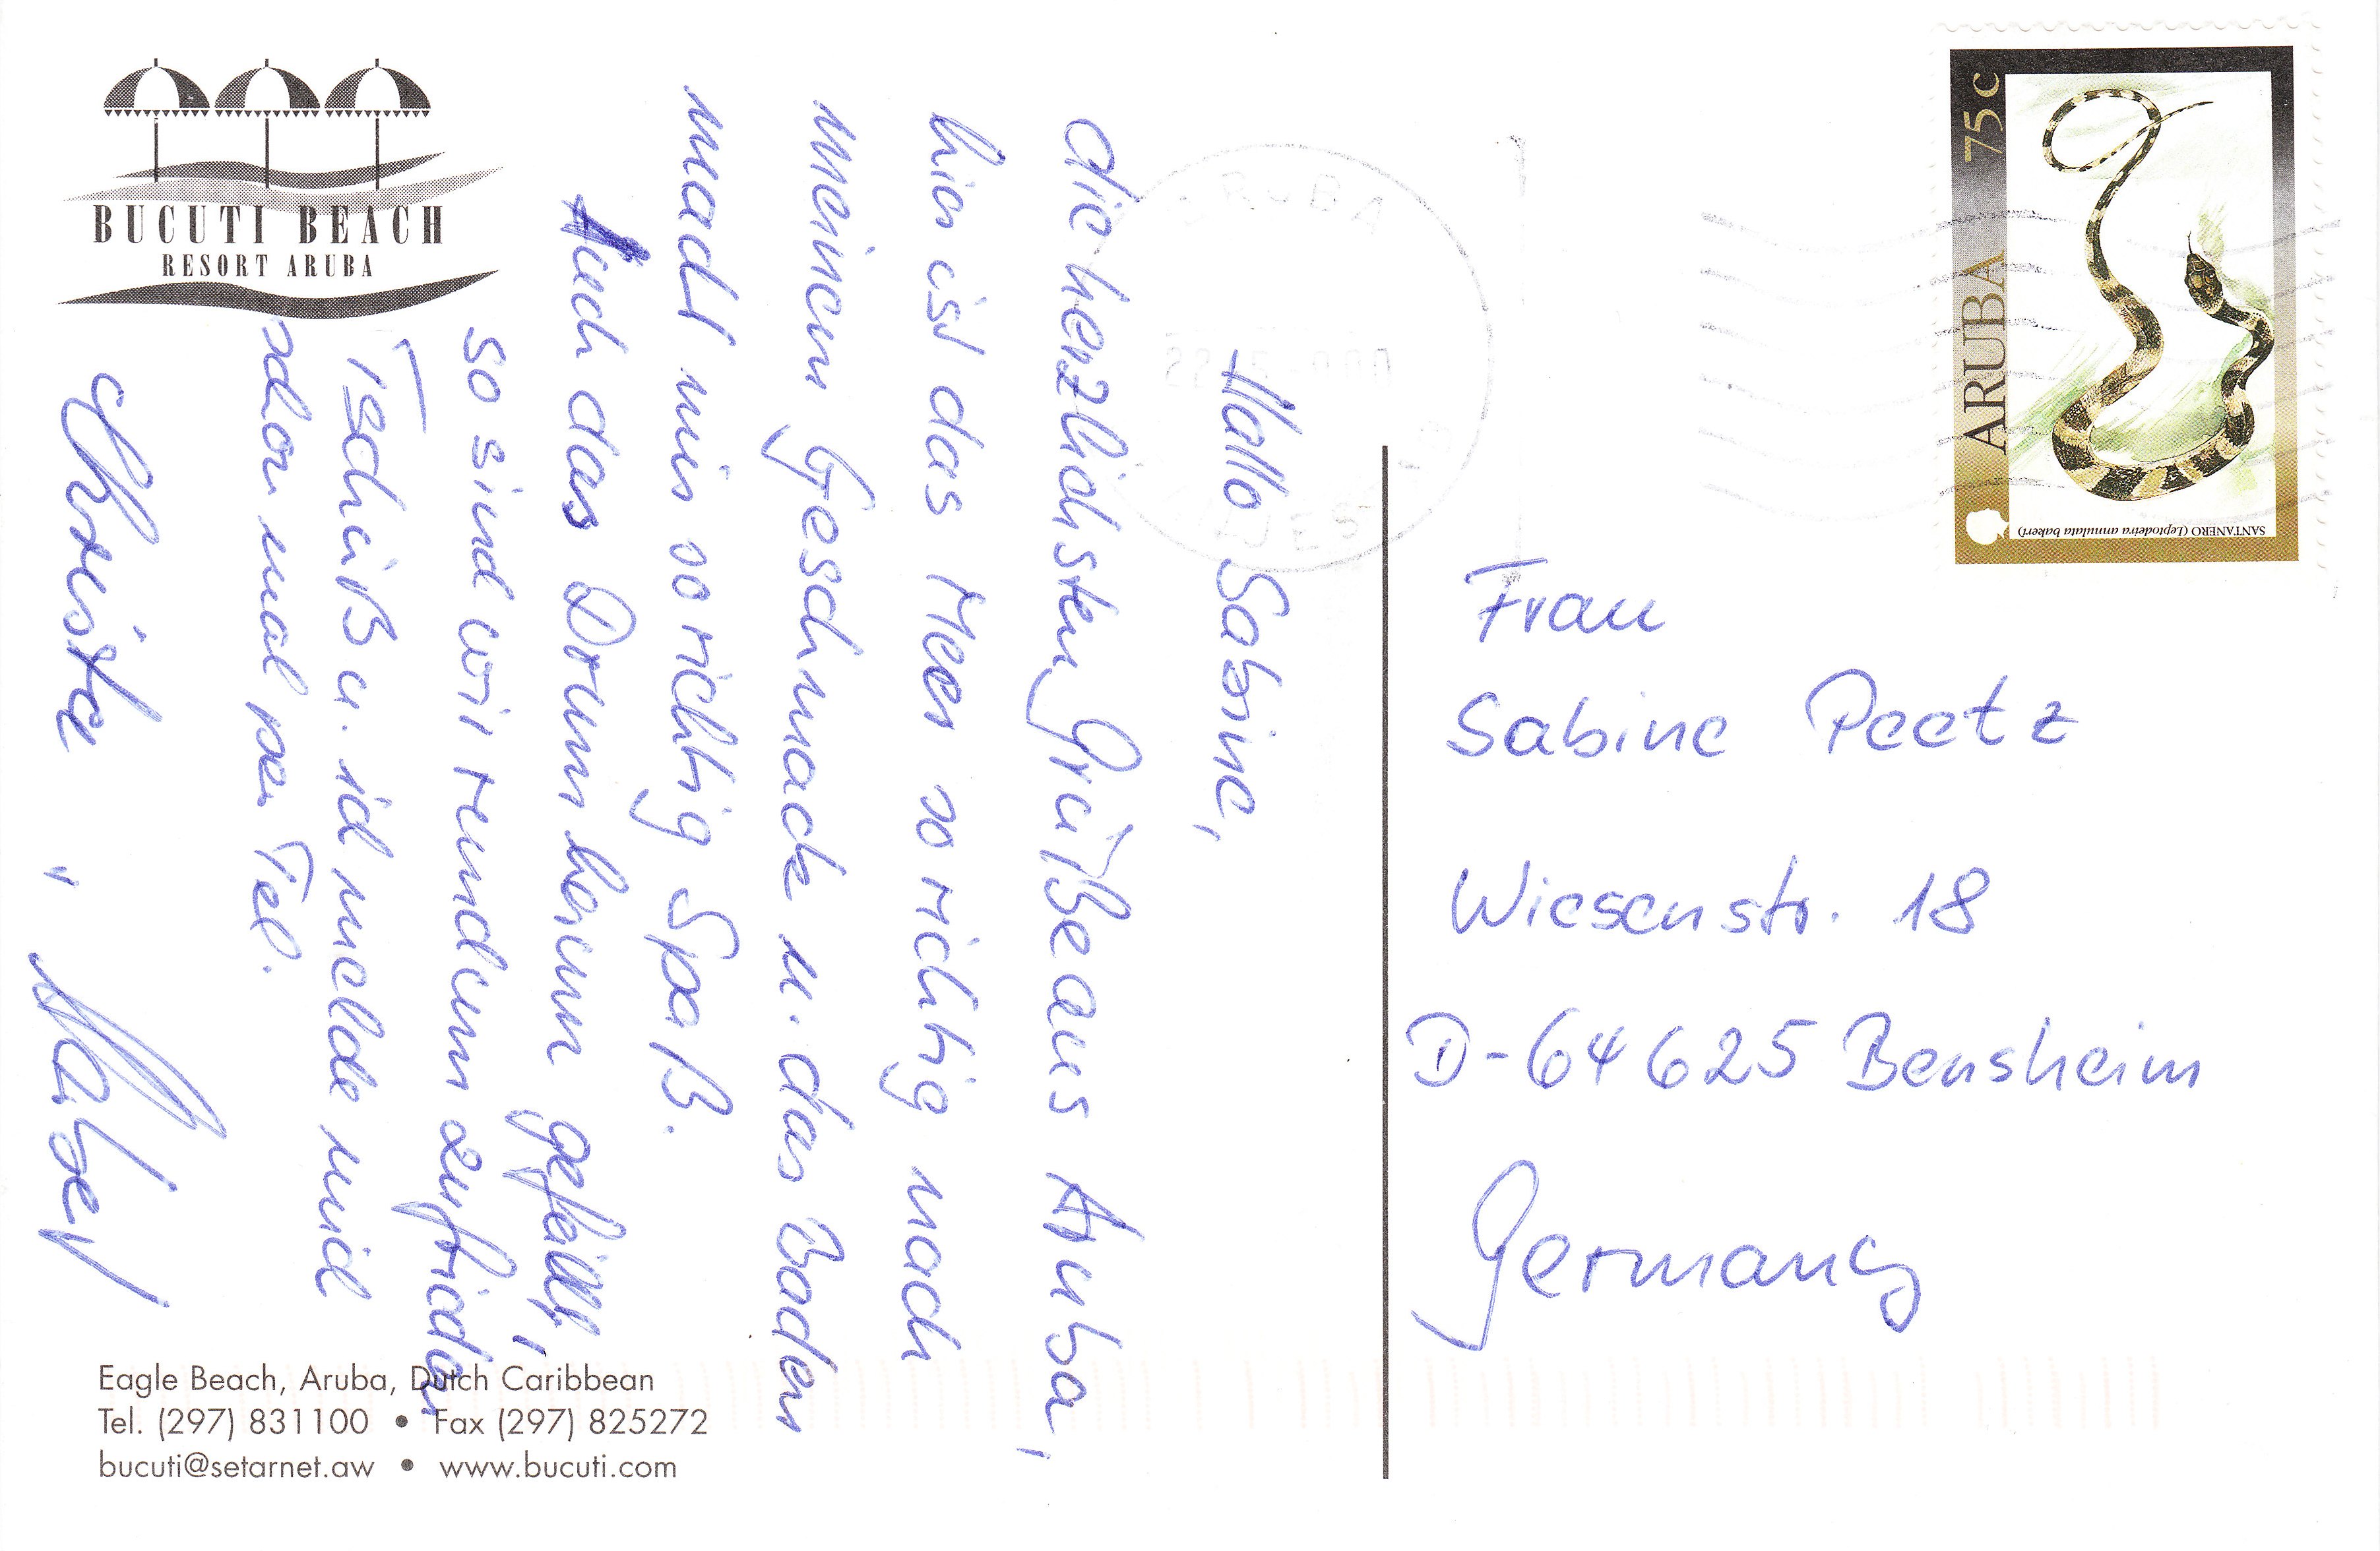 BUCUTI BEACH
RESORT ARUBA
Hallo Sabine,
die herzlichsten Grüße aus Aruba,
hier ist das Meer so richtig nach
meinem Geschmack u. das Baden
macht mir so richtig Spaß.
Auch das Drumherum gefällt,
so sind wir rundum zufrieden
Tschüß u. ich melde mich
schon mal per Tel.
Christa
Eagle Beach, Aruba, Dutch Caribbean
Tel. (297) 831100 • Fax (297) 825272
bucuti@setarnet.aw • www.bucuti.com
75c
ARUBA
SANTANERO (Leptodeira annulata bakeri)
Frau
Sabine Peetz
Wiesenstr. 18
D-64625 Bensheim
Germany